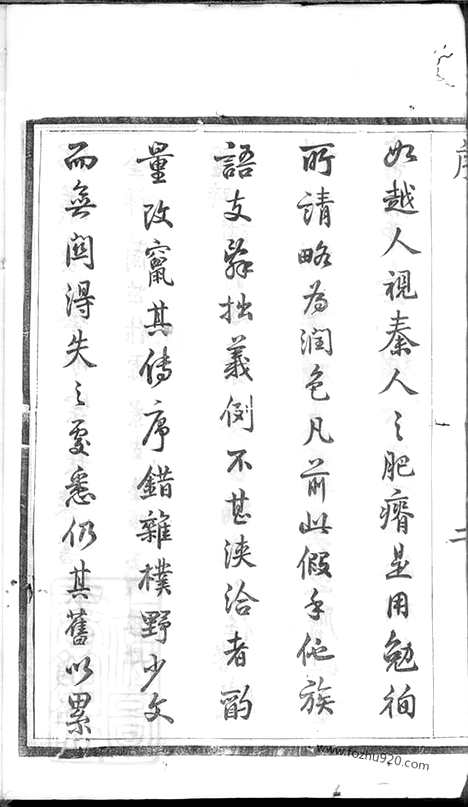 序
二
如越人視秦人之肥瘠是用勉徇
所請略為潤色凡前此假手他族
語支辭拙義例不甚浹洽者酌
量改竄其傳序錯雜樸野少文
而無關得失之處悉仍其舊以累
www.fozhu920.com